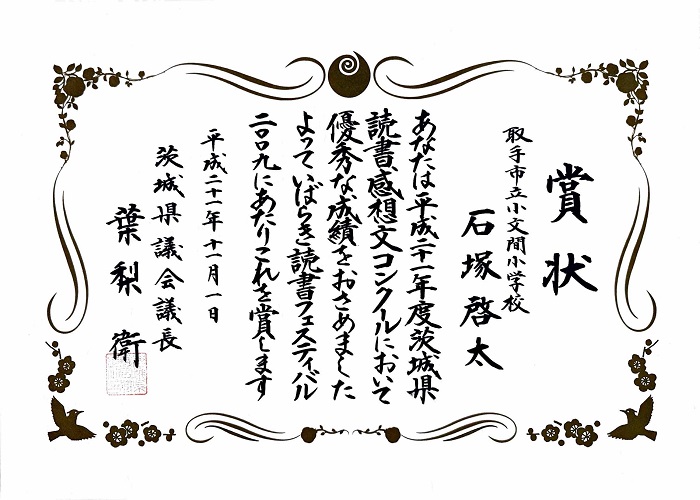 賞状
取手市立小文間小学校
石塚啓太
あなたは平成二十一年度茨城県
読書感想文コンクールにおいて
優秀な成績をおさめました
よっていばらき読書フェスティバル
二〇〇九にあたりこれを賞します
平成二十一年十一月一日
茨城県議会議長
葉梨衛